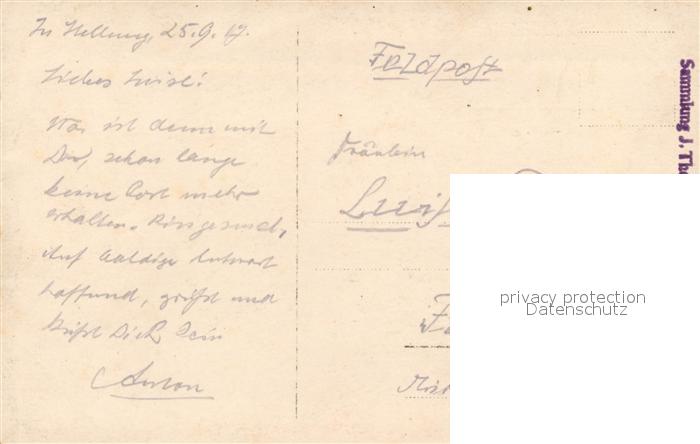 In Stellung, 25.9.17.
Liebes Luisl!
Was ist denn mit
Dir, schon lange
keine Post mehr
erhalten. Bin gesund,
Auf baldige Antwort
hoffend, grüßt und
küßt Dich Dein
Anton
Feldpost
Fräulein
Sammlung J.
privacy protection
Datenschutz